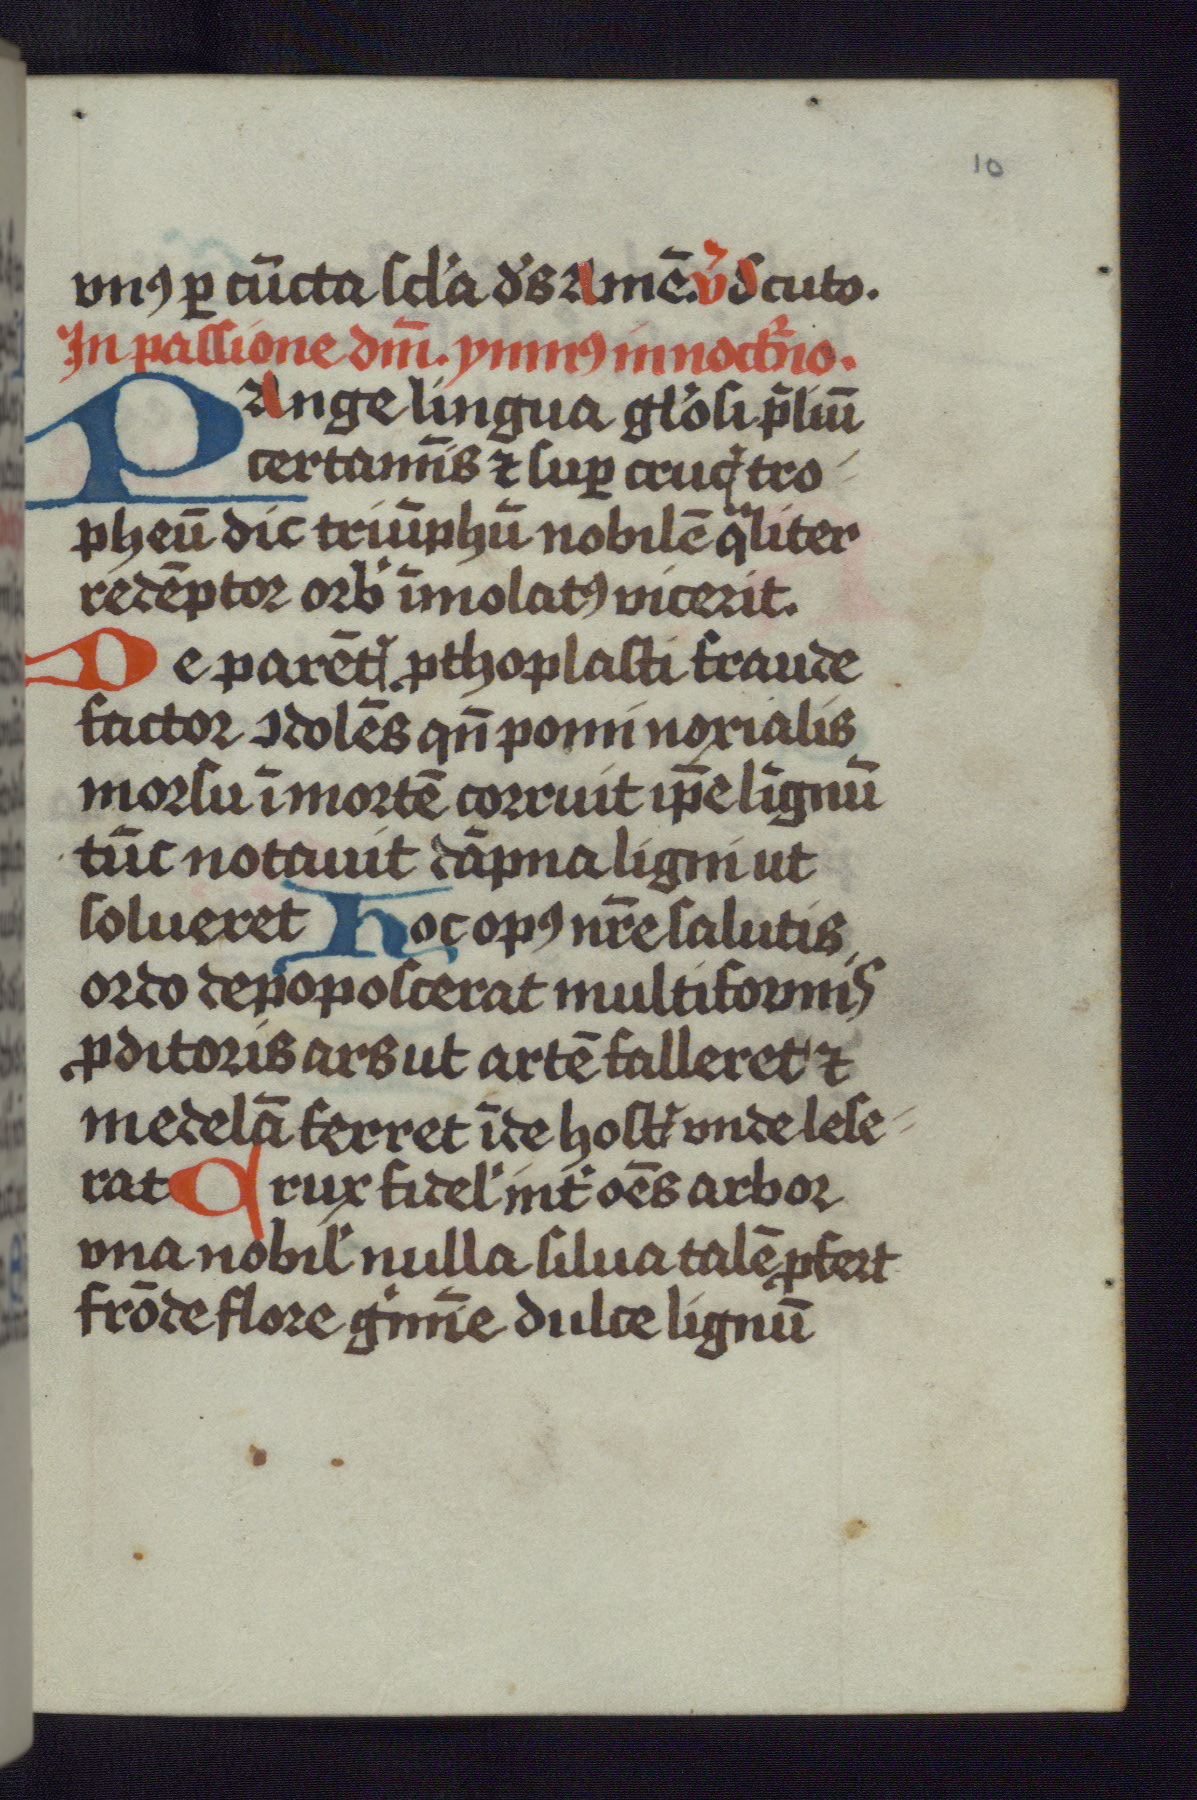 10
vnꝰ ꝑ cūcta scl'a d's Amē. v̄ Scuto.
In passione dm̄. ymnꝰ in noct̄no.
PAnge lingua gl'osi p̄liū
certam̄is ⁊ sup̲ cruc̨ tro-
pheū dic triūphū nobilē qͣliter
redēptor orb' īmolatꝰ vicerit.
De parēt̨ ꝓthoplasti fraude
factor ↄdolēs qn̄ pomi noxialis
morsu ī mortē corruit ip̄e lignū
tūc notauit dāpna ligni ut
solueret Hoc opꝰ nr̄e salutis
ordo depoposcerat multiformis
ꝓditoris ars ut artē falleret ⁊
medelā ferret īde host' vnde lese-
rat Crux fidel' int' oēs arbor
vna nobil' nulla silua talē ꝓfert
frōde flore g'mīe dulce lignū